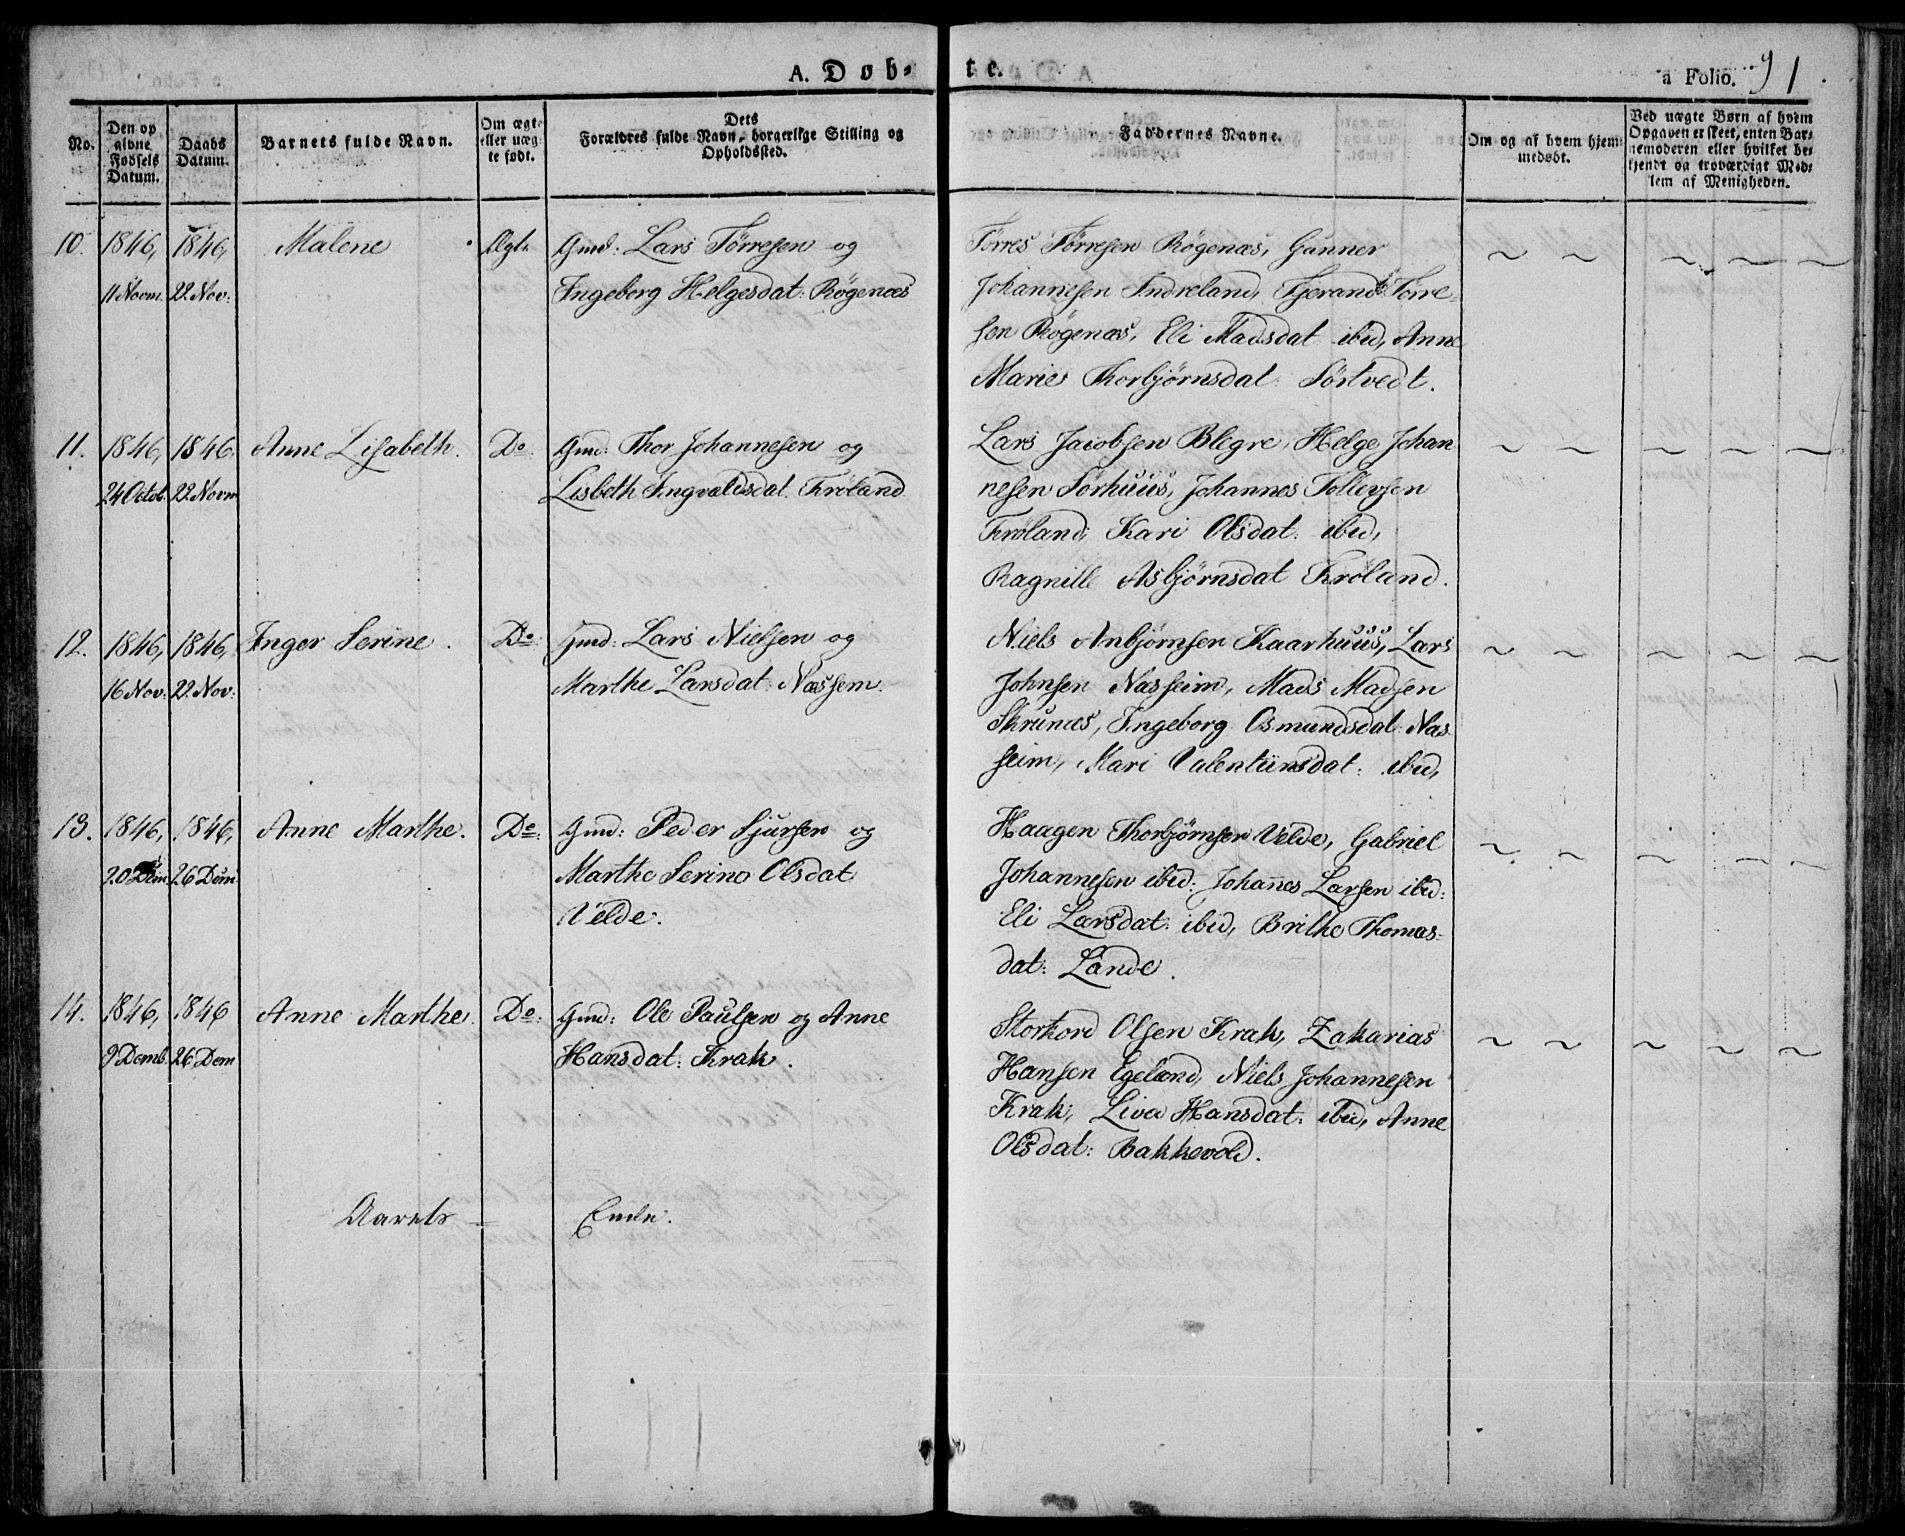 A. Døb- te. a Folio. 91.
No.
Den op
givne
Fødsels
Datum.
Daabs
Datum.
Barnets fulde Navn.
Om ægte
eller uæg-
te født.
Dets
Forældres fulde Navn, borgerlige Stilling og
Opholdssted.
Faddernes Navne.
Om og af hvem hjem-
medøbt.
Ved uægte Børn af hvem
Opgaven er skeet, enten Bar-
nemoderen eller hvilket be-
kjendt og troværdigt Med-
lem af Menigheden.
10. 1846, 1846, Malene Ægte Gmd: Lars Tørresen og
11 Novm. 22 Nov: Ingeborg Helgesdat: Røgenæs
Tørres Tørresen Røgenæs, Gunner
Johannesen Indreland, Tjerand Tørre-
sen Røgenæs, Eli Madsdat ibid, Anne
Marie Thorbjørnsdat: Sørtvedt.
11. 1846, 1846. Anne Lisabeth. Do Gmd: Thor Johannesen og
24 Octob. 22 Novm Lisbeth Ingvaldsdat. Frøland
Lars Jacobsen Blegre, Helge Johan
nesen Sørhuus, Johannes Tollevsen
Frøland, Kari Olsdat: ibid,
Ragnille Asbjørnsdat Frøland.
12. 1846, 1846, Inger Serine. Do: Gmd: Lars Nielsen og
16 Nov: 22 Nov: Marthe Larsdat: Næssem.
Niels Anbjørnsen Kaarhuus, Lars
Johnsen Næsseim, Mads Madsen
Skrunæs, Ingeborg Osmundsdat: Næs
seim, Mari Valentinsdat: ibid,
13. 1846, 1846, Anne Marthe. Do: Gmd: Peder Sjursen og
20 Dem 26 Dem Marthe Serine Olsdat
Velde.
Haagen Thorbjørnsen Velde, Gabriel
Johannesen ibid: Johanes Larsen ibid:
Eli Larsdat: ibid, Brithe Thomas-
dat: Lande.
14. 1846, 1846 Anne Marthe. Do: Gmd: Ole Paulsen og Anne
9 Demb. 26 Dem Hansdat: Krak.
Storkord Olsen Krak, Zakarias
Hansen Egeland, Niels Johannesen
Krak, Liva Hansdat: ibid, Anne
Olsdat: Bakkevold.
Aarets — Ende.